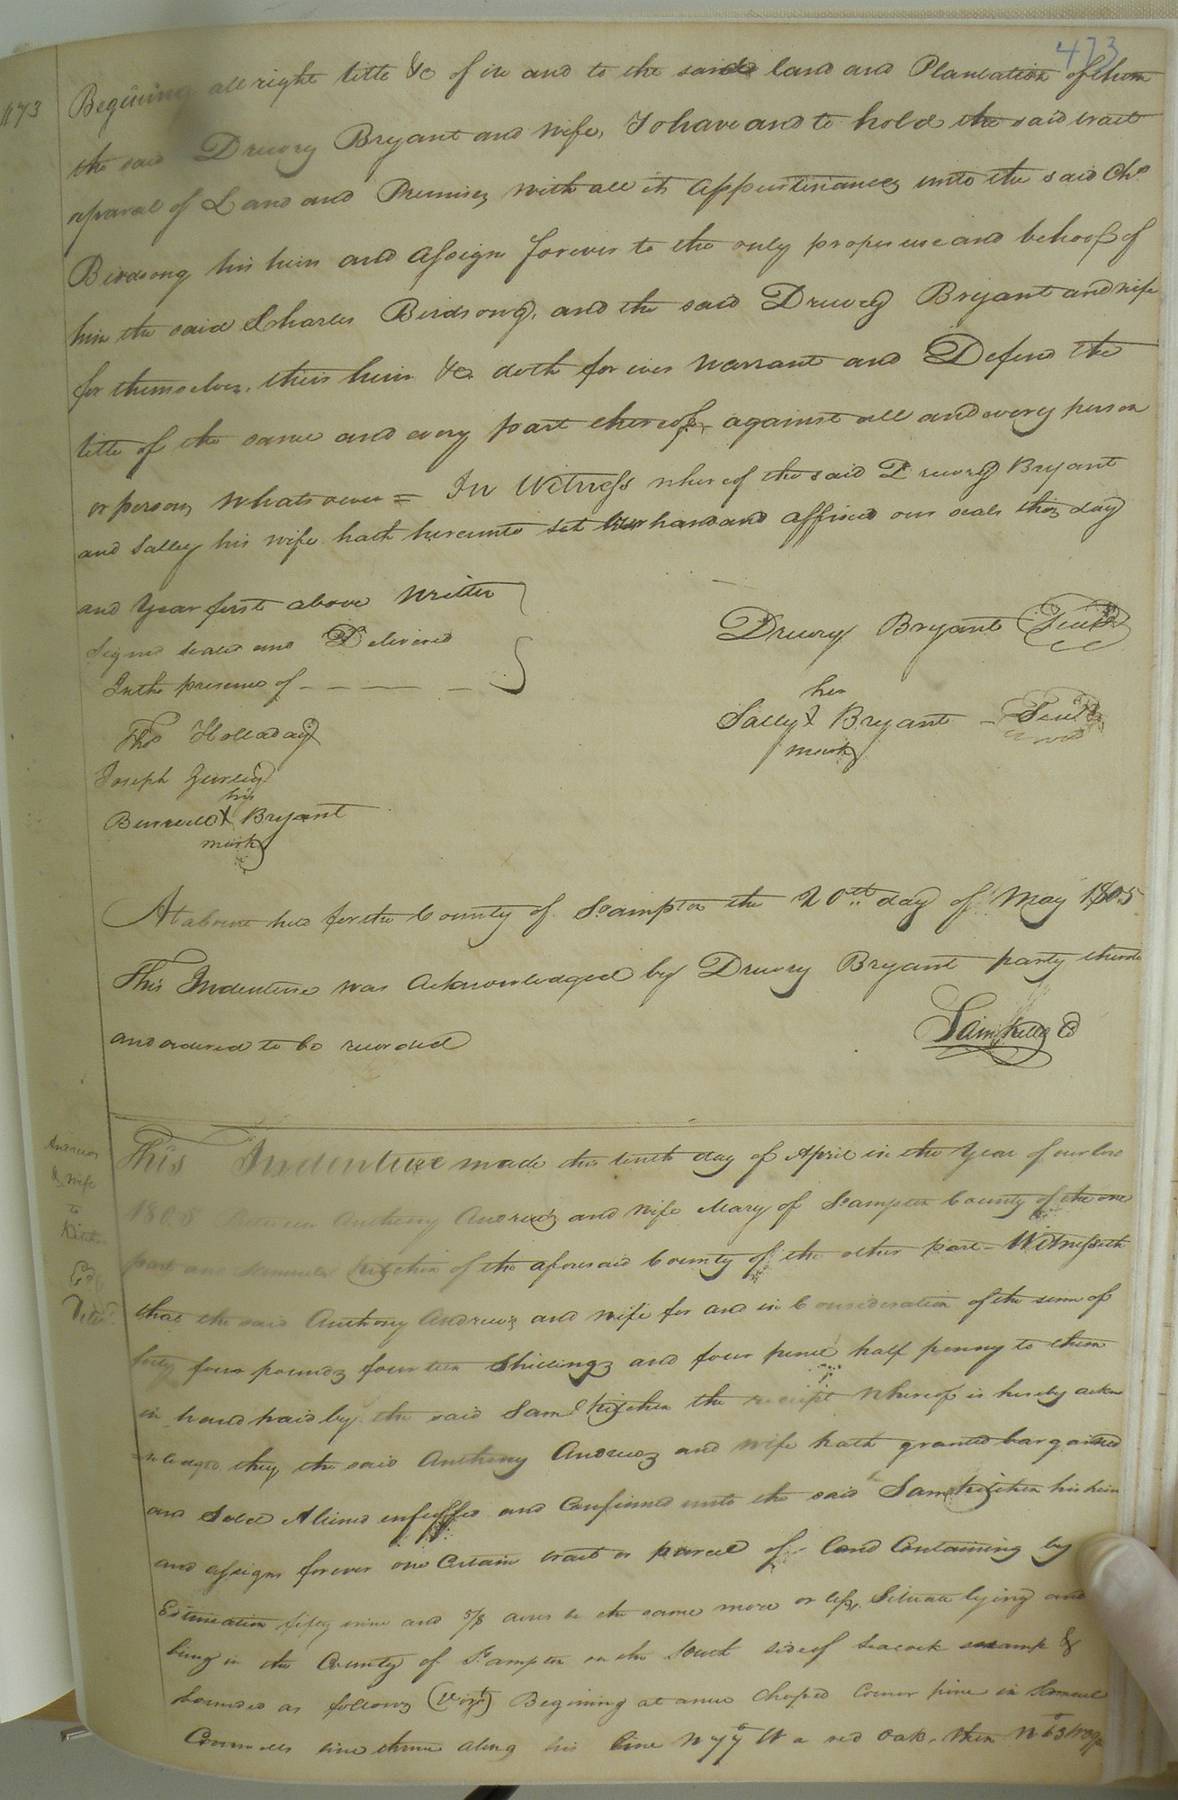 473
Begining all right title &c of in and to the said land and Plantation of them
the said Drewry Bryant and wife, To have and to hold the said tract
or parcel of Land and Premises with all its Appurtinances unto the said Chs
Birdsong his heirs and assigns forever to the only proper use and behoof of
him the said Charles Birdsong, and the said Drewry Bryant and wife
for themselves, their heirs &c doth for ever warrant and Defend the
title of the same and every part thereof against all and every person
or persons whatsoever = In Witness whereof the said Drewry Bryant
and Salley his wife hath hereunto set hand and affixed our seals the day
and Year first above written
Signed sealed and Delivered
In the presence of
Drewry Bryant Seal
her
Sally X Bryant Seal
mark
Thos Holladay
Joseph Gurley
his
Burwell X Bryant
mark
At a court held for the County of So.ampton the 20th day of May 1805
This Indenture was acknowledged by Drewry Bryant party thereto
and ordered to be recorded
Saml Kello C
Andrews
& wife
to
Kitchen
This Indenture made this tenth day of April in the Year of our lord
1805 Between Anthony Andrews and wife Mary of So.ampton County of the one
part and Samuel Kitchen of the aforesaid County of the other part - Witnesseth
that the said Anthony Andrews and wife for and in Consideration of the sum of
forty four pounds fourteen Shillings and four pence half penny to them
in hand paid by the said Saml Kitchen the receipt whereof is hereby ackno
wledged they the said Anthony Andrews and wife hath granted bargained
and Sold Aliened enfeoffed and Confirmed unto the said Saml Kitchen his heirs
and assigns forever one Certain tract or parcel of Land Containing by
Estimation fifty nine and 5/8 acres be the same more or less, Situate lying and
being in the County of So.ampton on the South side of Seacock swamp &
bounded as follows (Vizt) Begining at a new Choped Corner pine in Samuel
line thence along his line N 77° W a red Oak, then N 63